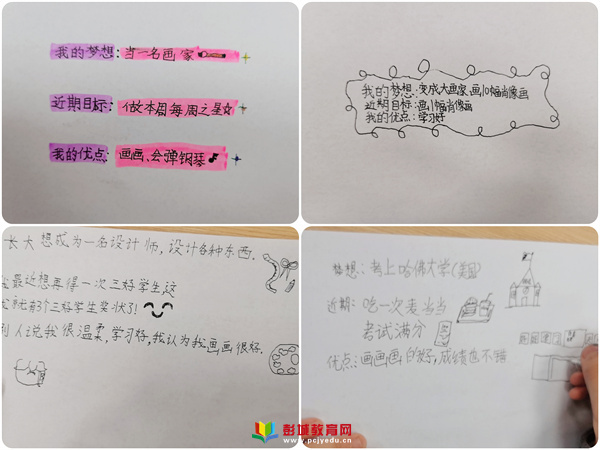 我的梦想:当一名画家
近期目标:做本周每周之星
我的优点:画画、会弹钢琴
我的梦想:变成大画家 画10幅肖像画
近期目标:画1幅肖像画
我的优点:学习好
长大想成为一名设计师,设计各种东西.
最近想再得一次三好学生这
就有3个三好学生奖状了!
别人说我很温柔,学习好,我认为我画画很好.
梦想:考上哈佛大学(美国)
近期:吃一次麦当当
考试满分
优点:画画画的好,成绩也不错
彭城教育网
www.pcjyedu.cn